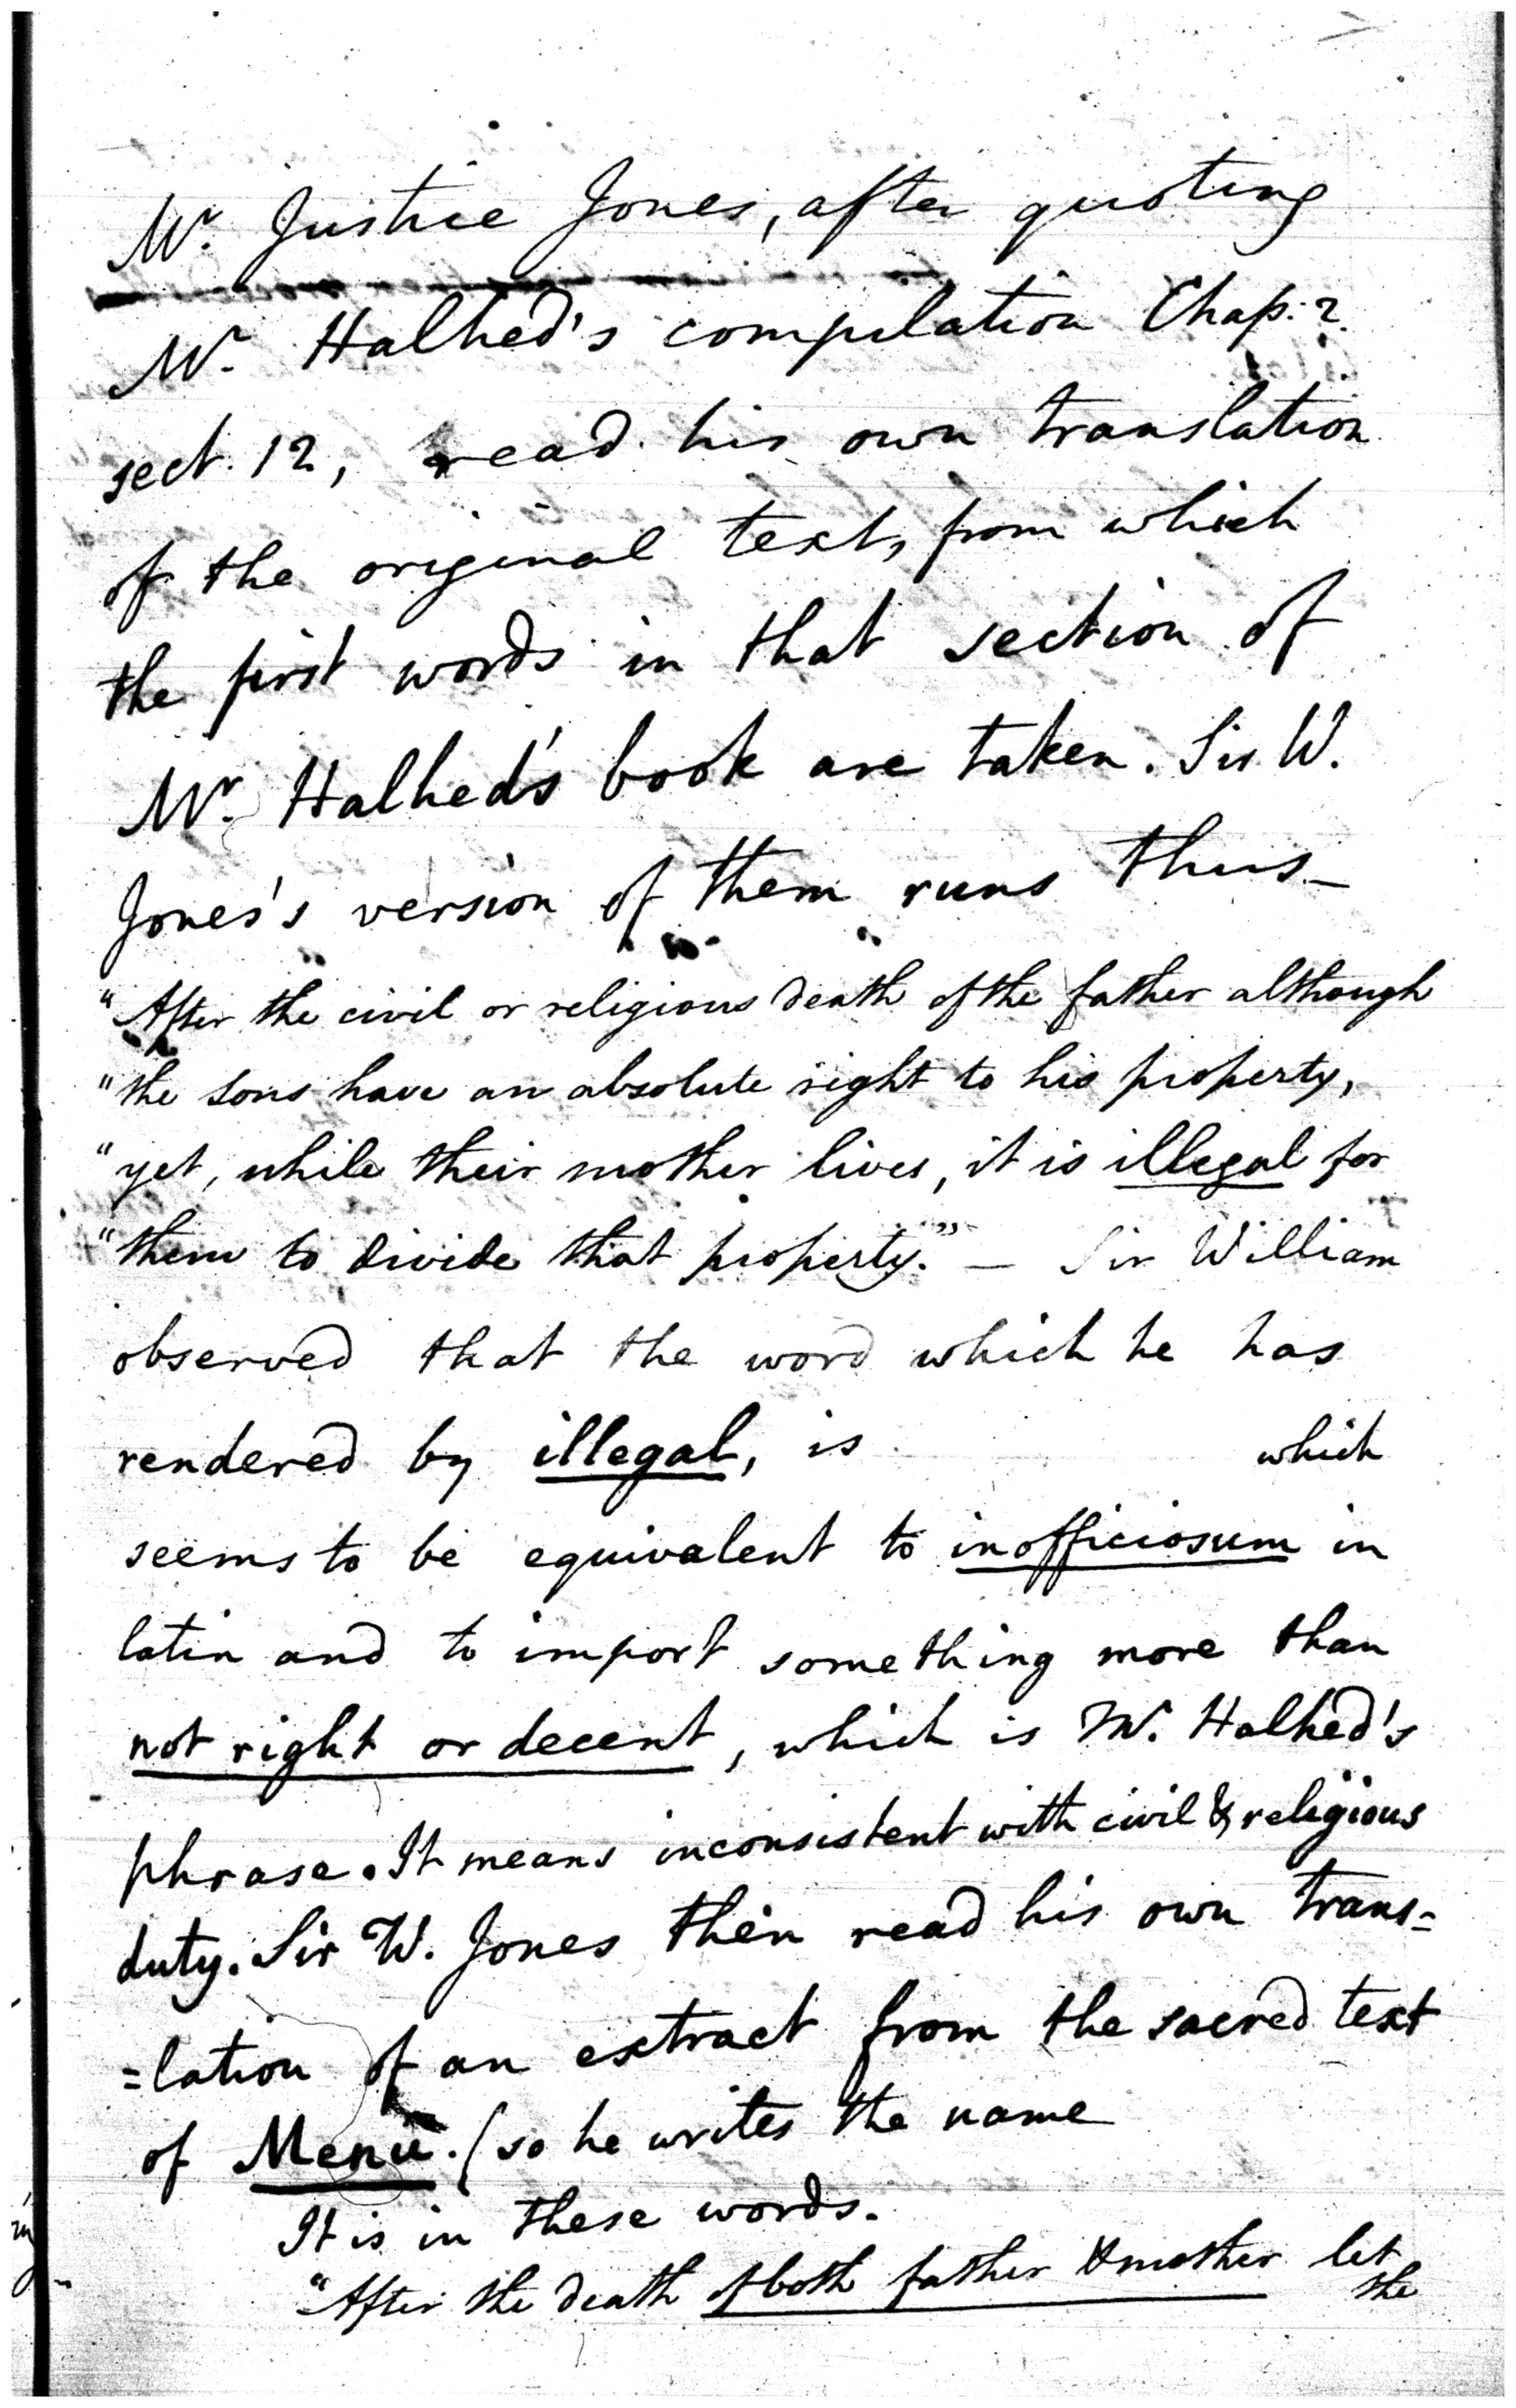 Mr. Justice Jones, after quoting
Mr. Halhed's compilation Chap. 2.
sect. 12, read his own translation
of the original text, from which
the first words in that section of
Mr. Halhed's book are taken. Sir W.
Jones's version of them runs thus—
"After the civil or religious death of the father although
"the sons have an absolute right to his property,
"yet, while their mother lives, it is illegal for
"them to divide that property." — Sir William
observed that the word which he has
rendered by illegal, is which
seems to be equivalent to inofficiosum in
latin and to import something more than
not right or decent, which is Mr. Halhed's
phrase. It means inconsistent with civil & religious
duty. Sir W. Jones then read his own trans=
=lation of an extract from the sacred text
of Menu. (so he writes the name
It is in these words.
"After the death of both father & mother let
the